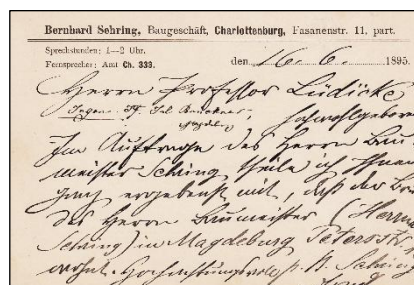 Bernhard Sehring, Baugeschäft, Charlottenburg, Fasanenstr. 11, part.
Sprechstunden: 1–2 Uhr.
Fernsprecher: Amt Ch. 333.
den 16. 6. 1895.
Herrn Professor Lüdicke
Hochwohlgeboren
Im Auftrage des Herrn Bau-
meister Sehring theile ich Ihnen
ganz ergebenst mit, daß der
des Herrn Baumeister (Herrn
Sehring) in Magdeburg
wohnt. Hochachtungsvoll